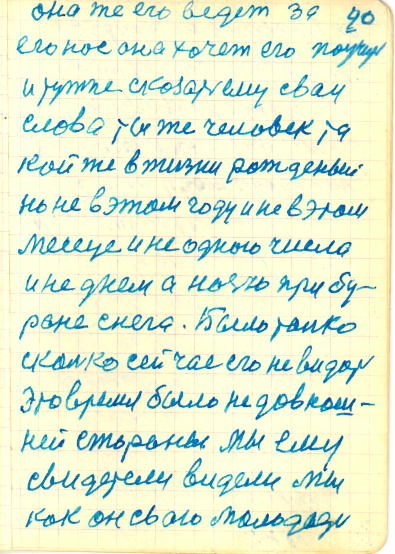 она же его ведет за 40
его нос она хочет его поучит
и тутже сказат ему сваи
слова ты же человек та
кой же в жизни рожденый
но не в этом году и не в этом
месеце и не одного числа
и не днем а ночю при бу-
ране снега. Было толко
сколко сей час его не видат
Это время было не довнош-
ней стораны мы ему
свидетели видели мы
как он сваго